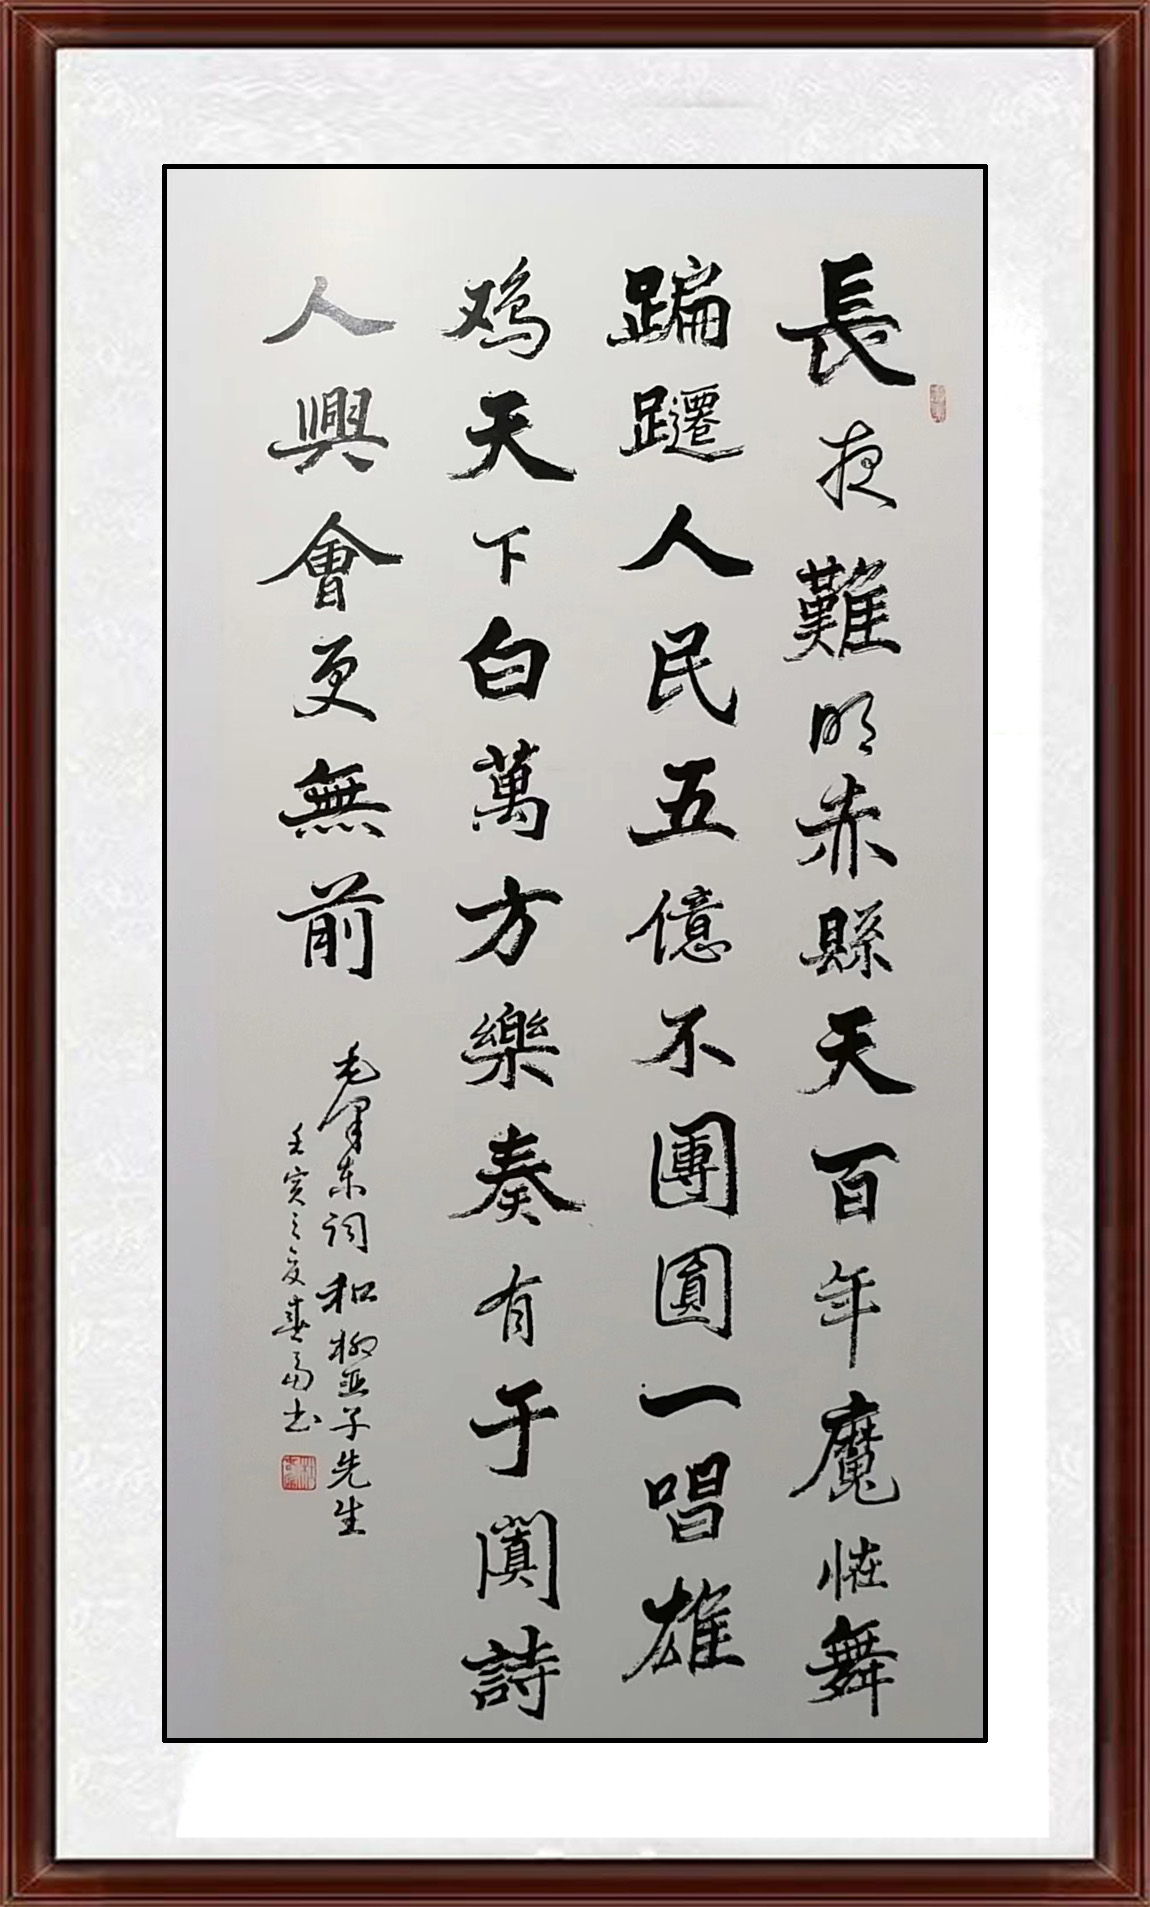 長夜難明赤縣天百年魔怪舞
蹁躚人民五億不團圓一唱雄
鸡天下白萬方樂奏有于闐詩
人興會更無前
毛澤东词和柳亚子先生
壬寅之夏春富书